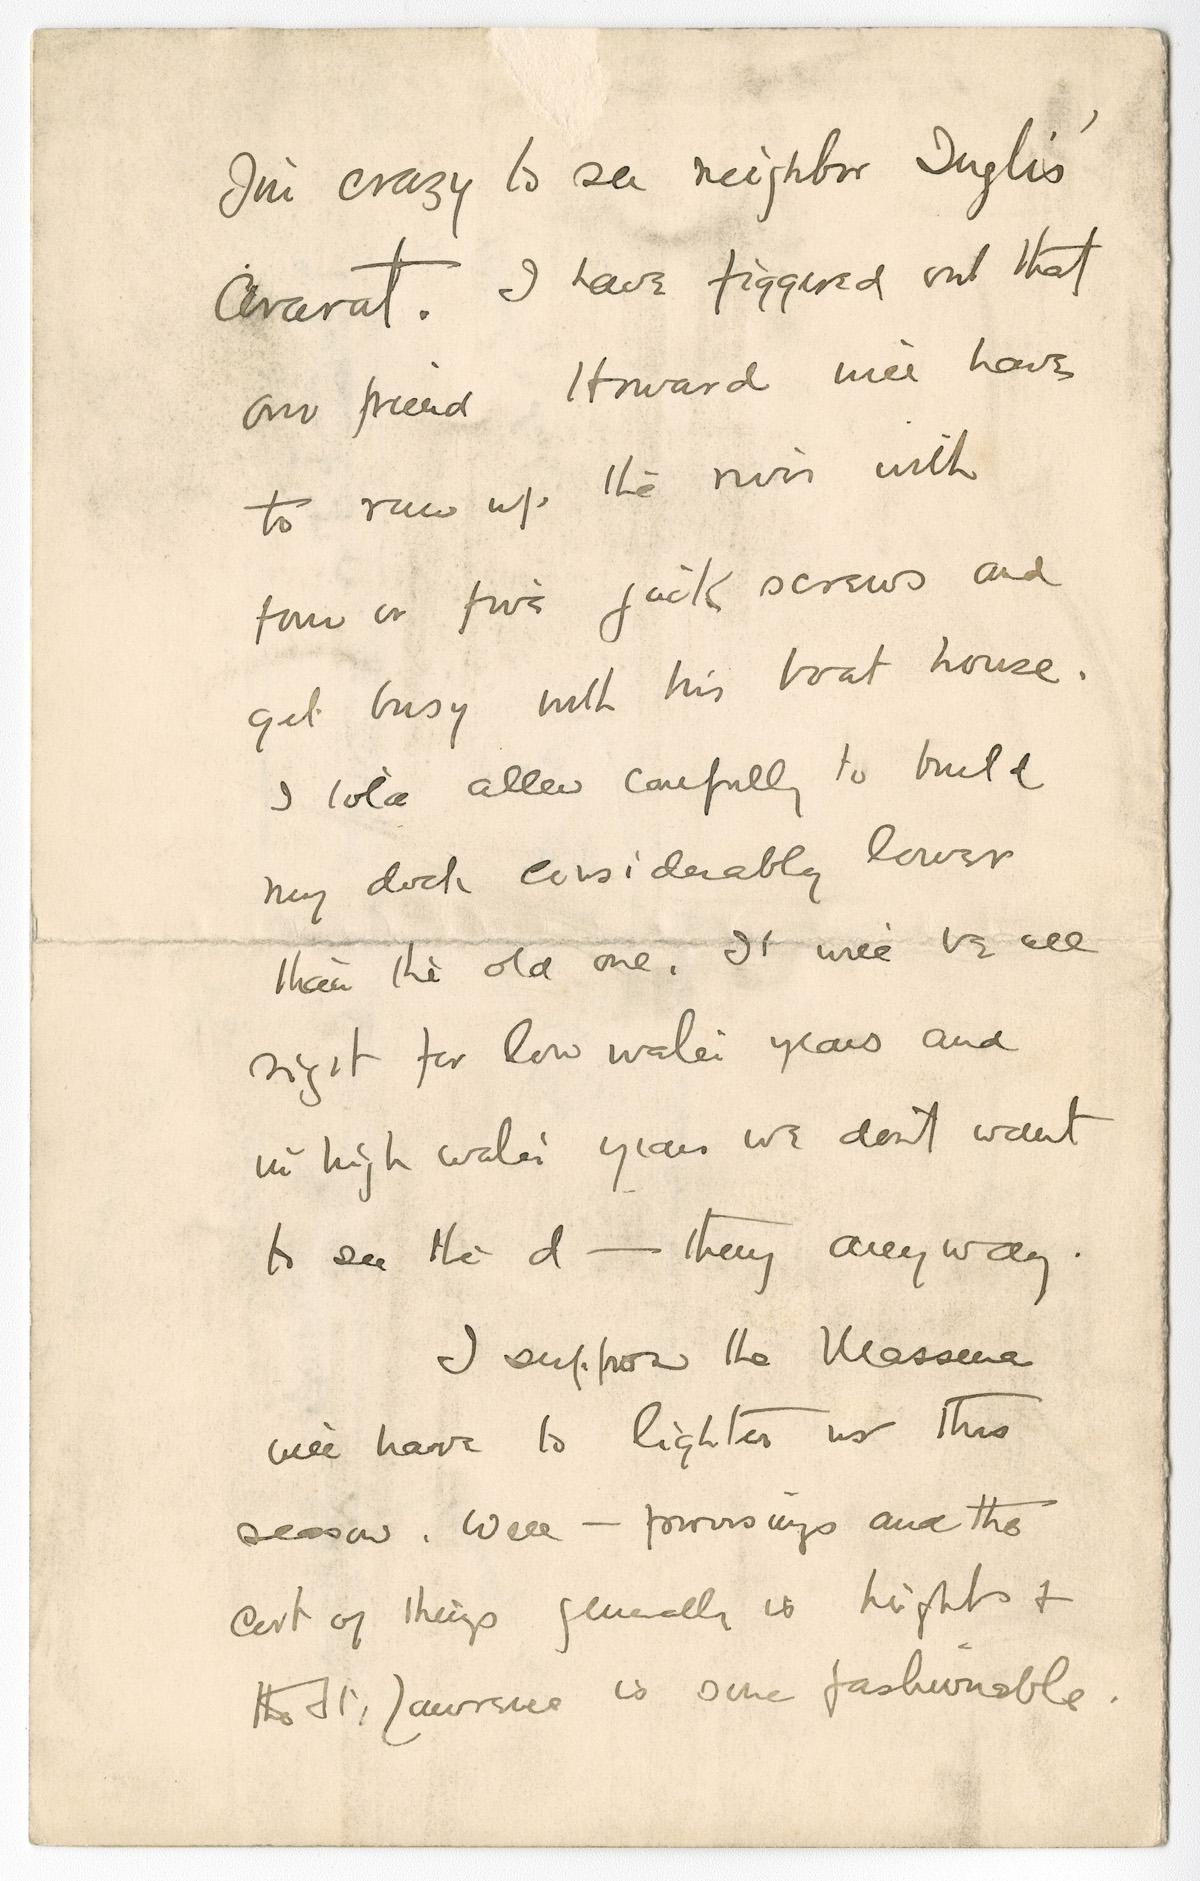 I'm crazy to see neighbor Inglis'
Ararat. I have figgered out that
our friend Howard will have
to run up the river with
four or five jack screws and
get busy with his boat house.
I told Allen carefully to build
my dock considerably lower
than the old one. It will be all
right for low water years and
in high water years we don't want
to see the d — thing anyway.
I suppose the Massena
will have to lighter us this
season. Well — provisings and the
cost of things generally is hight &
the St. Lawrence is sure fashionable.